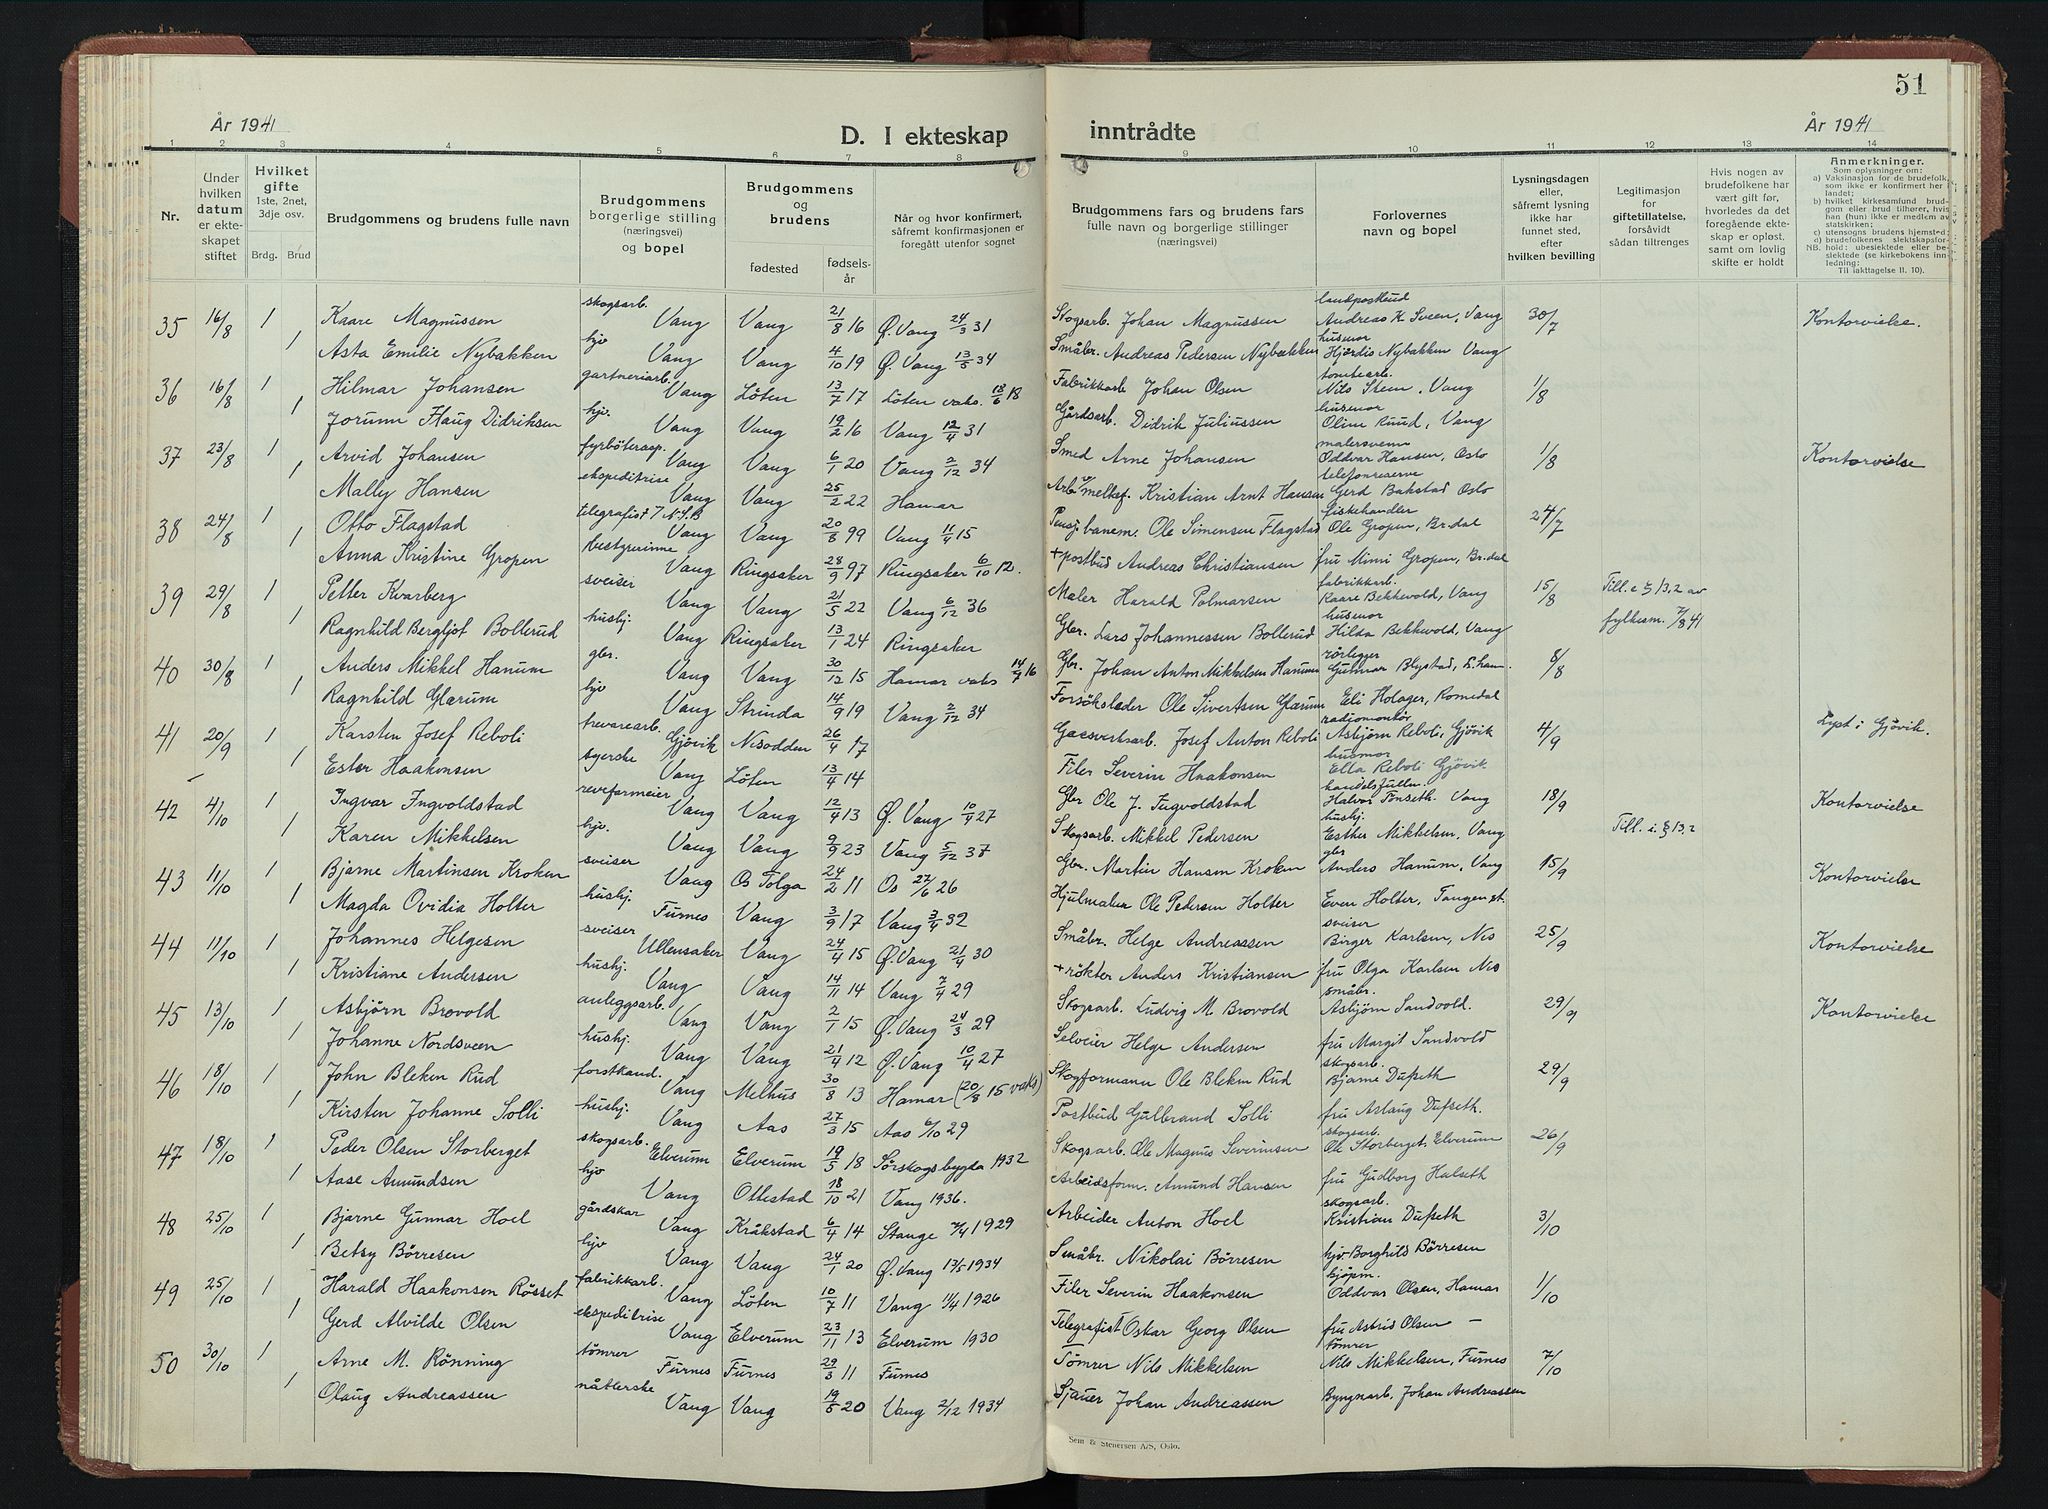 51
År 1941
D. I ekteskap inntrådte
År 1941
1 2 3 4 5 6 7 8 9 10 11 12 13 14
Nr.
Under hvilken datum er ekteskapet stiftet
Hvilket gifte 1ste, 2net, 3dje osv.
Brdg. Brud
Brudgommens og brudens fulle navn
Brudgommens borgerlige stilling (næringsvei) og bopel
Brudgommens og brudens
fødested
fødselsår
Når og hvor konfirmert, såfremt konfirmasjonen er foregått utenfor sognet
Brudgommens fars og brudens fars fulle navn og borgerlige stillinger (næringsvei)
Forlovernes navn og bopel
Lysningsdagen eller, såfremt lysning ikke har funnet sted, efter hvilken bevilling
Legitimasjon for giftetillatelse, forsåvidt sådan tiltrenges
Hvis nogen av brudefolkene har vært gift før, hvorledes da det foregående ekteskap er opløst, samt om lovlig skifte er holdt
Anmerkninger.
Som oplysninger om:
a) Vaksinasjon for de brudefolk, som ikke er konfirmert her i landet;
b) hvilket kirkesamfund brudgom eller brud tilhører, hvis han (hun) ikke er medlem av statskirken;
c) utensogns brudens hjemsted;
d) brudefolkenes slektskapsforhold: ubesiektede eller beslektede (se kirkebokens innledning:
NB. Til iakttagelse II. 10).
35 16/8 1 Kaare Magnussen skogsarb. Vang Vang 21/8 16 Ø. Vang 24/3 31 Skogsarb. Johan Magnussen landpostbud Andreas K Sveen, Vang 30/7 Kontorvielse.
1 Asta Emilie Nybakken hjv Vang Vang 4/10 19 Ø. Vang 13/5 34 Småbr. Andreas Pedersen Nybakken husmor Hjördis Nybakken Vang
36 16/8 1 Hilmar Johansen gartneriarb. Vang Löten 13/7 17 Löten vaks. 18/6 18 Fabrikkarb Johan Olsen tomtearb. Nils Stem, Vang 1/8
1 Jorunn Haug Didriksen hjv. Vang Vang 19/2 16 Vang 12/4 31 Gårdsarb. Didrik Juliussen husmor Oline Ruud, Vang
37 23/8 1 Arvid Johansen fyrböterasp. Vang Vang 6/1 20 Vang 2/12 34 Smed Arne Johansen malersvenn Oddvar Hansen, Oslo 1/8 Kontorvielse
1 Mally Hansen ekspeditrise Vang Vang 25/2 22 Hamar Arb v/ melkef. Kristian Arnt Hansen telefonreserve Gerd Bakstad Oslo
38 24/8 1 Otto Flagstad telegrafist N.S.B Vang Vang 20/8 99 Vang 11/4 15 Pensj. banem. Ole Simensen Flagstad fiskehandler Ole Gropen, Br.dal 24/7
1 Anna Kristine Gropen bestyrerinne Vang Ringsaker 28/9 97 Ringsaker 6/10 12. + postbud Andreas Christiansen fru Mimi Gropen, Br.dal
39 29/8 1 Petter Kvarberg sveiser Vang Vang 21/5 22 Vang 6/12 36 Maler Harald Polmarsen fabrikkarb. Kaare Bekkevold, Vang 15/8 Till. e § 13,2 av
1 Ragnhild Bergljot Bollerud hushj. Vang Ringsaker 13/1 24 Ringsaker Gbr. Lars Johannessen Bollerud husmor Hilda Bekkevold, Vang fylkesm. 7/8 41
40 30/8 1 Anders Mikkel Hanum gbr. Vang Vang 30/12 15 Hamar vaks 14/7 16 Gbr. Johan Anton Mikkelsen Hanum rörlegger Gulmar Blystad, L.ham. 8/8
1 Ragnhild Glærum hjv Vang Strinda 14/9 19 Vang 2/12 34 Forsöksleder Ole Sivertsen Glærum Eli Holager, Romedal
41 20/9 1 Karsten Josef Reboli trevarearb. Gjövik Nesodden 26/4 17 Gassverksarb. Josef Anton Reboli radiomontör Asbjörn Reboli, Gjövik 4/9 Lyst i Gjövik.
1 Ester Haakonsen syerske Vang Löten 13/4 14 Filer Severin Haakonsen husmor Ella Reboli Gjövik
42 4/10 1 Ingvar Ingvoldstad reveformeier Vang Vang 12/4 13 Ø. Vang 10/4 27 Gbr Ole J. Ingvoldstad handelsfullm. Halvor Tönseth. Vang 18/9 Kontorvielse
1 Karen Mikkelsen hjv. Vang Vang 9/9 23 Vang 5/12 37 Skogsarb. Mikkel Pedersen hushj. Esther Mikkelsen, Vang Till. i. § 13,2
43 11/10 1 Bjarne Martinsen Kroken sveiser Vang Os Tolga 24/2 11 Os 27/6 26 Gbr. Martin Hansen Kroken gbr Anders Hanum, Vang 15/9 Kontorvielse
1 Magda Ovidia Holter hushj. Furnes Vang 3/9 17 Vang 3/4 32 Hjulmaker Ole Pedersen Holter Even Holter, Tangen st.
44 11/10 1 Johannes Helgesen sveiser Ullensaker Vang 24/4 15 Ø. Vang 21/4 30 Småbr. Helge Andreassen sveiser Birger Karlsen, Nes 25/9 Kontorvielse
1 Kristiane Andersen hushj. Vang Vang 14/11 14 Vang 7/4 29 + rökter Anders Kristiansen fru Olga Karlsen Nes
45 13/10 1 Asbjörn Brovold anleggsarb. Vang Vang 2/1 15 Ø. Vang 24/3 29 Skogsarb. Ludvig M. Brovold småbr. Asbjörn Sandvold. 29/9 Kontorvielse
1 Johanne Nordsveen hushj. Vang Vang 21/4 12 Ø. Vang 10/4 27 Selveier Helge Andersen fru Margit Sandvold
46 18/10 1 John Bleken Rud forstkand. Vang Melhus 30/8 13 Hamar (20/8 15 vaks) Skogformann Ole Bleken Rud skogsarb. Bjarne Dufseth 29/9
1 Kirsten Johanne Solli hushj. Vang Aas 27/3 15 Aas 6/10 29 Postbud Gulbrand Solli fru Aslaug Dufseth.
47 18/10 1 Peder Olsen Storberget skogsarb. Elverum Elverum 19/5 18 Sörskogsbygda 1932 Skogsarb. Ole Magnus Severinsen skogsarb. Ole Storberget, Elverum 26/9
1 Aase Amundsen hjv Vang Ottestad 18/10 21 Vang 1936. Arbeidsform. Amund Hansen fru Gudborg Halseth
48 25/10 1 Bjarne Gunnar Hoel gårdskar Vang Kråkstad 6/4 14 Stange 7/4 1929 Arbeider Anton Hoel skogsarb. Kristian Dufseth 3/10
1 Betsy Börresen hjv Vang Vang 24/1 20 Ø. Vang 13/5 1934 Småbr. Nikolai Börresen hjv. Borghild Börresen
49 25/10 1 Harald Haakonsen Rösset fabrikkarb. Vang Löten 10/7 11 Vang 11/4 1926 Filer Severin Haakonsen kjöpm. Oddvar Olsen, Hamar 1/10
1 Gerd Alvilde Olsen ekspeditrise Vang Elverum 23/11 13 Elverum 1930 Telegrafist Oskar Georg Olsen fru Astrid Olsen —
50 30/10 1 Arne M. Rönning tömrer Furnes Furnes 29/3 11 Furnes Tömrer Nils Mikkelsen tömrer Nils Mikkelsen, Furnes 7/10
1 Olaug Andreassen nåtlerske Vang Vang 19/5 20 Vang 2/12 1934 Sjauer Johan Andreassen Bygnarb. Johan Andreassen
Sem & Stenersen A/S, Oslo.